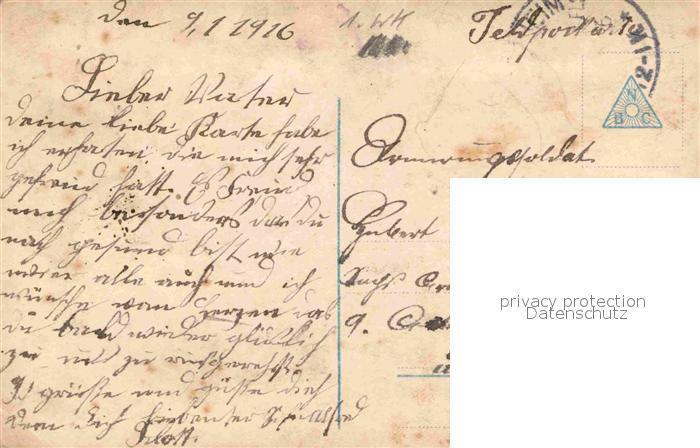 den 9.1 1916
1. WK
Feldpostkarte
2-1
N
B C
Lieber Vater
deine liebe Karte habe
ich erhalten, die mich sehr
gefreud hatt. Es Freud
mich besonders das du
noch gesund bist wie
wir alle auch und ich
wünsche von Herzen das
du bald wieder glücklich
zu uns zu
grüße und küsse dich
dein dich liebenter
Armierungssoldat
Hubert
9.
privacy protection
Datenschutz